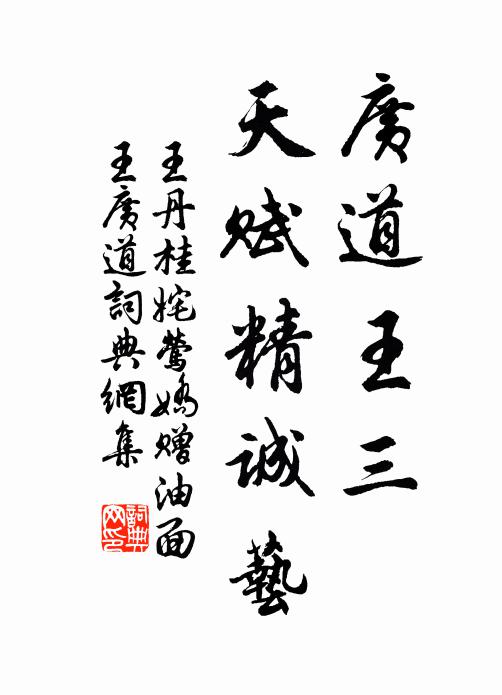 廣道王三
天賦精誠藝
王丹桂姹鶯嬌贈油面
王廣道詞典網集
詞典
网印